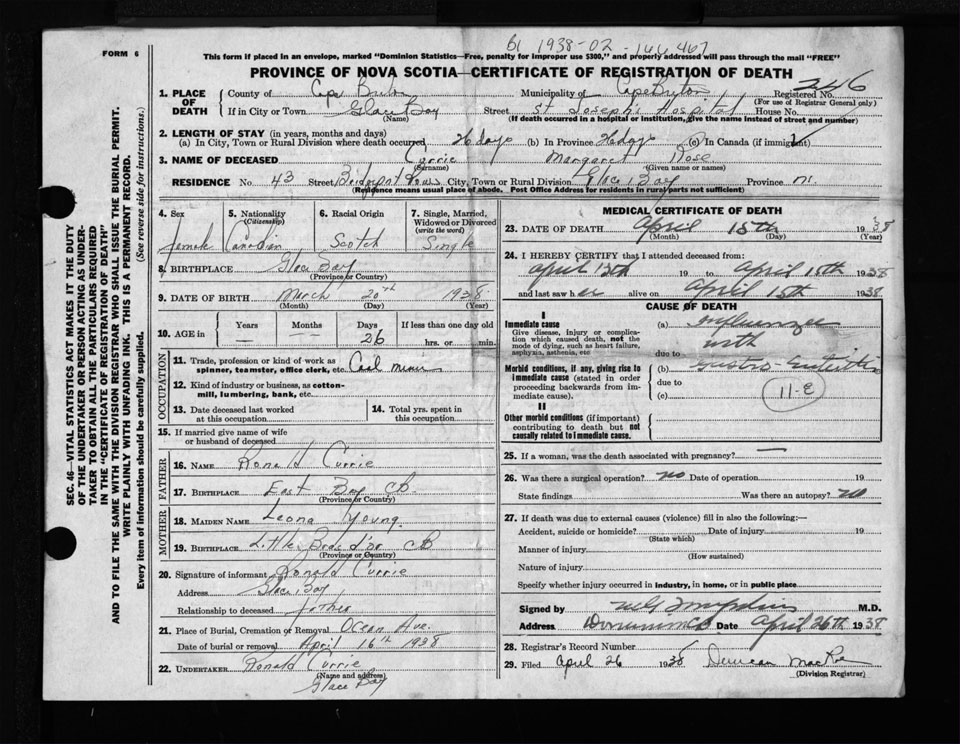 FORM 6
b1 1938-02-166467
This form if placed in an envelope, marked "Dominion Statistics—Free, penalty for improper use $300," and properly addressed will pass through the mail "FREE"
PROVINCE OF NOVA SCOTIA—CERTIFICATE OF REGISTRATION OF DEATH
1. PLACE OF DEATH County of Cape Breton Municipality of Cape Breton Registered No. 246
(For use of Registrar General only)
If in City or Town Glace Bay Street St. Joseph's Hospital House No.
(Name) (If death occurred in a hospital or institution, give the name instead of street and number)
2. LENGTH OF STAY (in years, months and days)
(a) In City, Town or Rural Division where death occurred 26 days (b) In Province 26 days (c) In Canada (if immigrant)
3. NAME OF DECEASED Currie Margaret Rose
(Surname) (Given name or names)
RESIDENCE No. 43 Street Bridgeport Rows City, Town or Rural Division Glace Bay Province n.s.
(Residence means usual place of abode. Post Office Address for residents in rural parts not sufficient)
4. Sex 5. Nationality 6. Racial Origin 7. Single, Married,
(Citizenship) Widowed or Divorced
(write the word)
female Canadian Scotch Single
8. BIRTHPLACE Glace Bay
(Province or Country)
9. DATE OF BIRTH March 20th 1938
(Month) (Day) (Year)
10. AGE in Years Months Days If less than one day old
— — 26 hrs. or min.
OCCUPATION
11. Trade, profession or kind of work as
spinner, teamster, office clerk, etc. Coal miner
12. Kind of industry or business, as cotton-
mill, lumbering, bank, etc.
13. Date deceased last worked
at this occupation
14. Total yrs. spent in
this occupation
15. If married give name of wife
or husband of deceased
FATHER
16. NAME Ronald Currie
17. BIRTHPLACE East Bay CB
(Province or Country)
MOTHER
18. MAIDEN NAME Leona Young
19. BIRTHPLACE Little Bras d'or CB
(Province or Country)
20. Signature of informant Ronald Currie
Address Glace Bay
Relationship to deceased father
21. Place of Burial, Cremation or Removal Ocean Ave.
Date of burial or removal April 16th 1938
22. UNDERTAKER Ronald Currie
(Name and address)
Glace Bay
MEDICAL CERTIFICATE OF DEATH
23. DATE OF DEATH April 15th 1938
(Month) (Day) (Year)
24. I HEREBY CERTIFY that I attended deceased from:
April 13th 19 to April 15th 1938
and last saw her alive on April 15th 1938
CAUSE OF DEATH
I
Immediate cause (a) Influenza
Give disease, injury or complica-
tion which caused death, not the with
mode of dying, such as heart failure,
asphyxia, asthenia, etc due to
Morbid conditions, if any, giving rise to (b) Gastro-Enteritis
immediate cause (stated in order due to
proceeding backwards from im-
mediate cause). (c) 11-E
II
Other morbid conditions (if important)
contributing to death but not
causally related to immediate cause.
25. If a woman, was the death associated with pregnancy? —
26. Was there a surgical operation? no Date of operation 19
State findings Was there an autopsy? no
27. If death was due to external causes (violence) fill in also the following:—
Accident, suicide or homicide? Date of injury 19
(State which)
Manner of injury
(How sustained)
Nature of injury
Specify whether injury occurred in industry, in home, or in public place
Signed by M.D.
Address Date April 26th 1938
28. Registrar's Record Number
29. Filed April 26 1938 Duncan MacRae
(Division Registrar)
SEC. 46—VITAL STATISTICS ACT MAKES IT THE DUTY
OF THE UNDERTAKER OR PERSON ACTING AS UNDER-
TAKER TO OBTAIN ALL THE PARTICULARS REQUIRED
IN THE "CERTIFICATE OF REGISTRATION OF DEATH"
AND TO FILE THE SAME WITH THE DIVISION REGISTRAR WHO SHALL ISSUE THE BURIAL PERMIT.
WRITE PLAINLY WITH UNFADING INK. THIS IS A PERMANENT RECORD.
Every item of information should be carefully supplied. (See reverse side for instructions.)